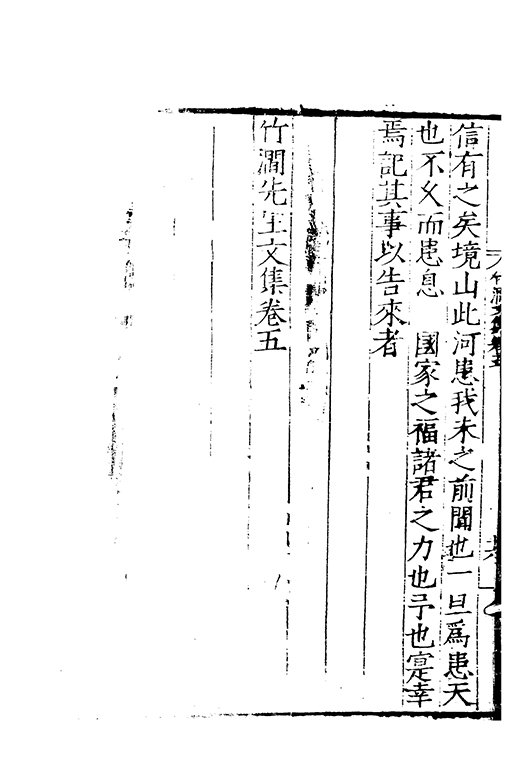 信有之矣境山此河患我未之前聞也一旦爲患天
也不乆而患息　國家之福諸君之力也予也寔幸
焉記其事以告來者
竹澗先生文集卷五
竹澗文集卷五